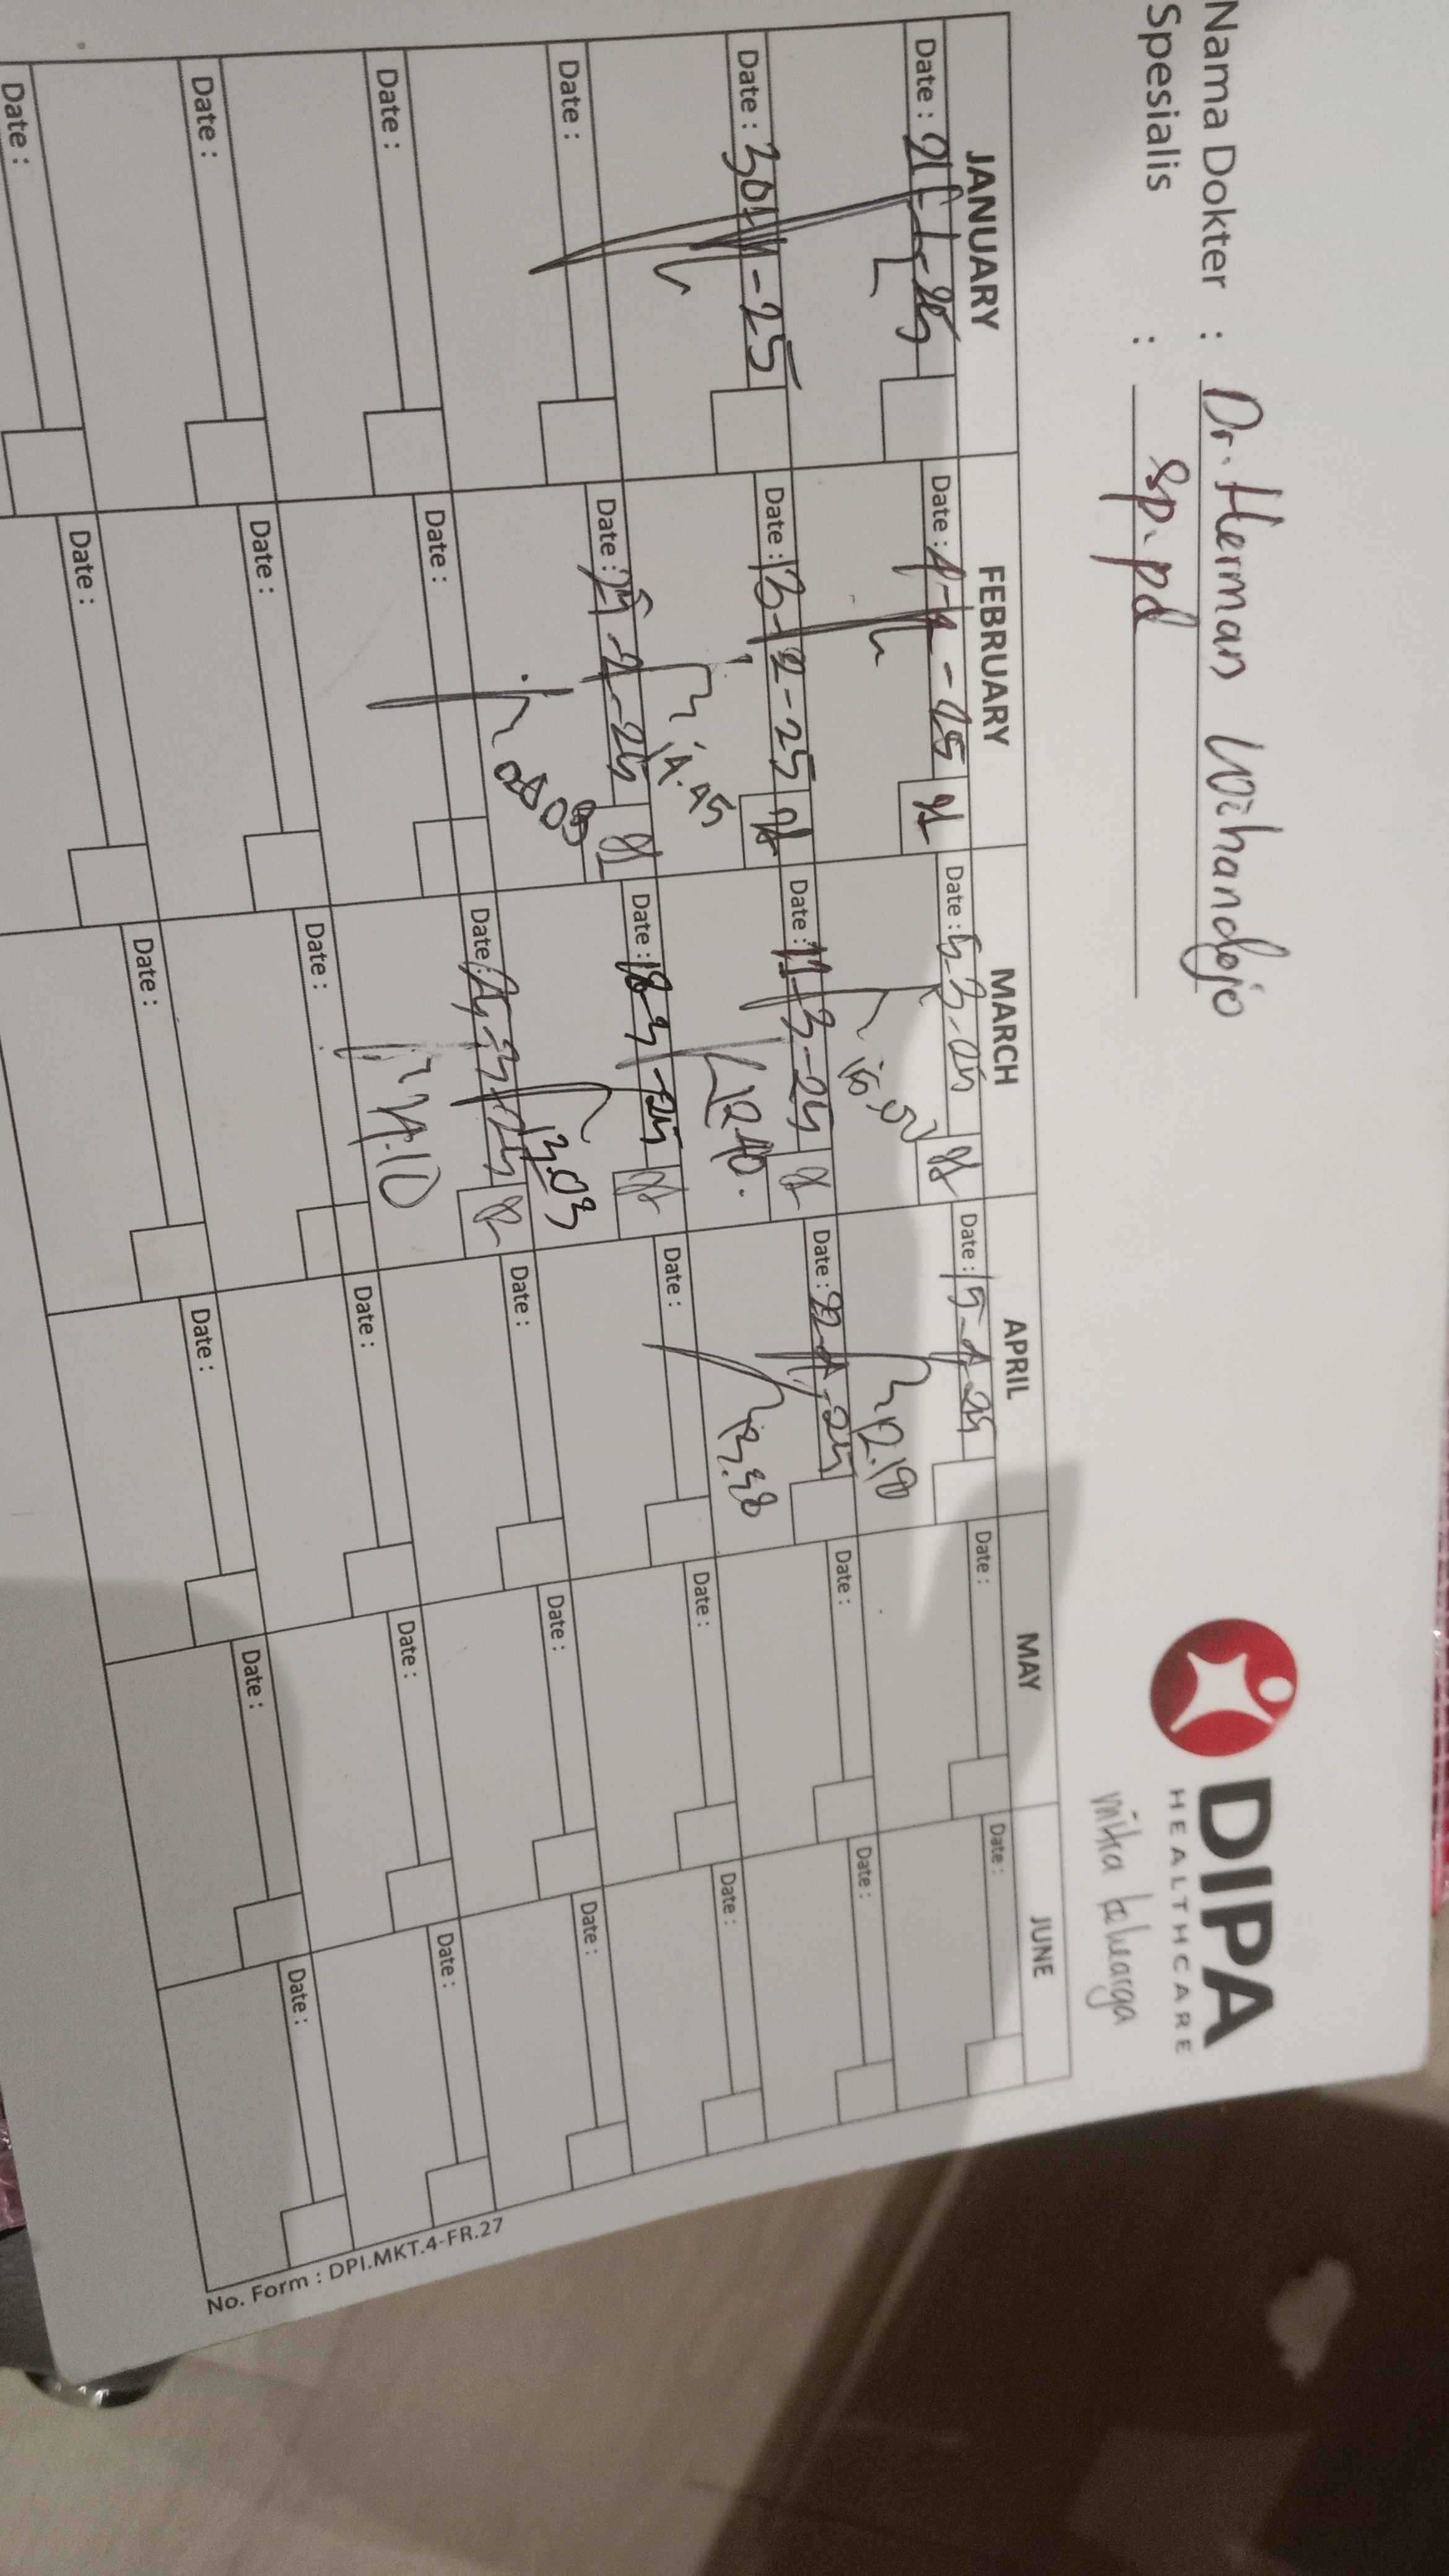 Nama Dokter : Dr. Herman Wihandojo
Spesialis : Sp.pd
DIPA
HEALTHCARE
mitra keluarga
JANUARY FEBRUARY MARCH APRIL MAY JUNE
Date : 21-1-25 Date : 4-2-25 Date : 5-3-25 Date : 15-4-25 Date : Date :
12.10
Date : 30-1-25 Date : 13-2-25 Date : 11-3-25 Date : 22-4-25 Date : Date :
14.45 12.40. 13.38
Date : Date : 25-2-25 Date : 18-3-25 Date : Date : Date :
13.03
Date : Date : Date : 25-3-25 Date : Date : Date :
14.10
Date : Date : Date : Date : Date : Date :
Date : Date : Date : Date : Date : Date :
No. Form : DPI.MKT.4-FR.27